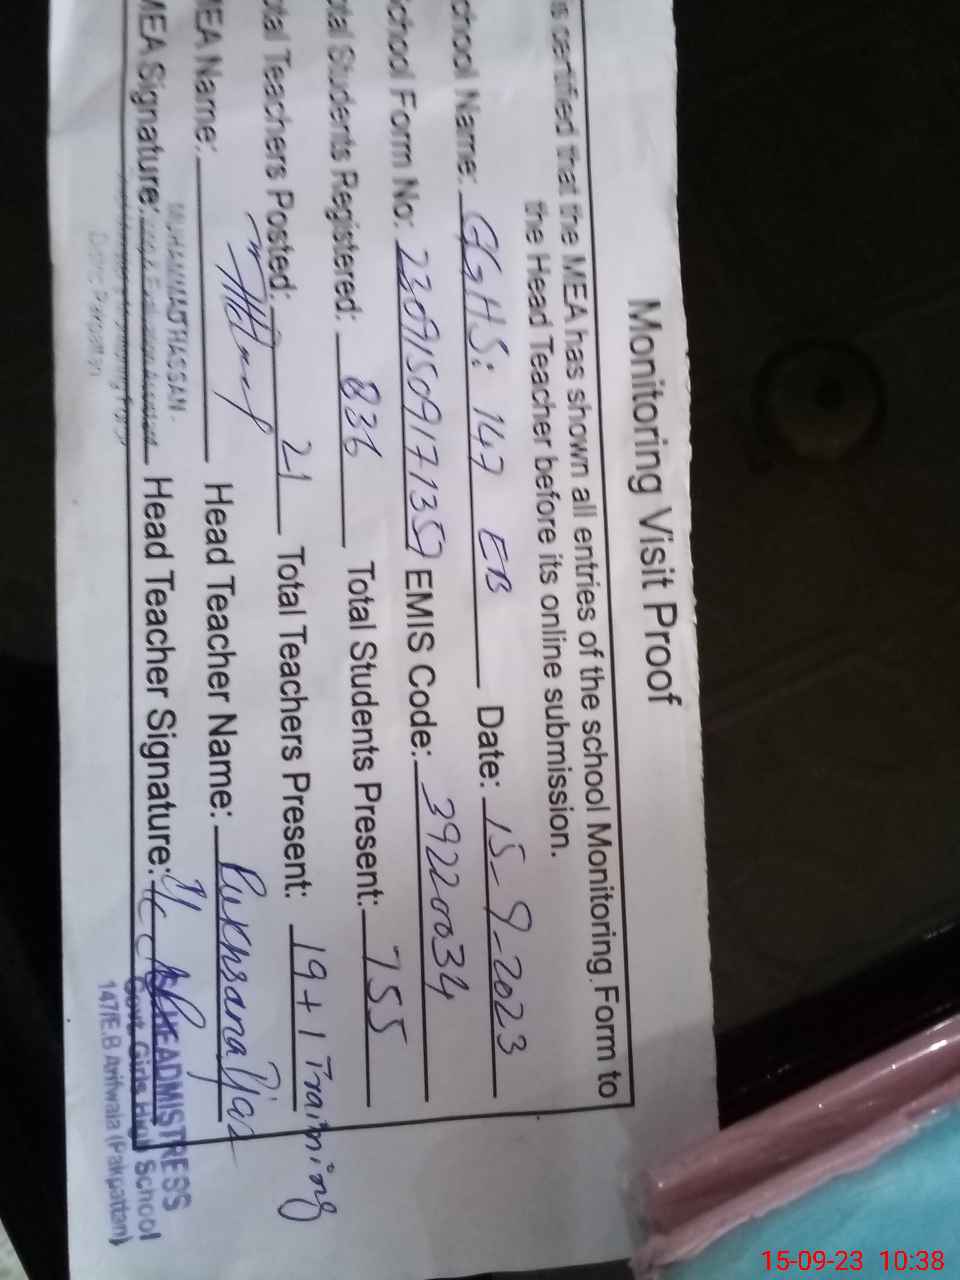 Monitoring Visit Proof
is certified that the MEA has shown all entries of the school Monitoring Form to
the Head Teacher before its online submission.
chool Name: GGHS: 147 EB Date: 15-9-2023
chool Form No: 2309150917135 EMIS Code: 39220034
otal Students Registered: 836 Total Students Present: 755
otal Teachers Posted: 21 Total Teachers Present: 19+1 Training
MEA Name: Head Teacher Name: Rukhsana
MEA Signature: Head Teacher Signature:
MUHAMMAD HASSAN
Pakpattan
HEADMISTRESS
Govt. Girls High School
147/E.B Arifwala (Pakpattan)
15-09-23 10:38